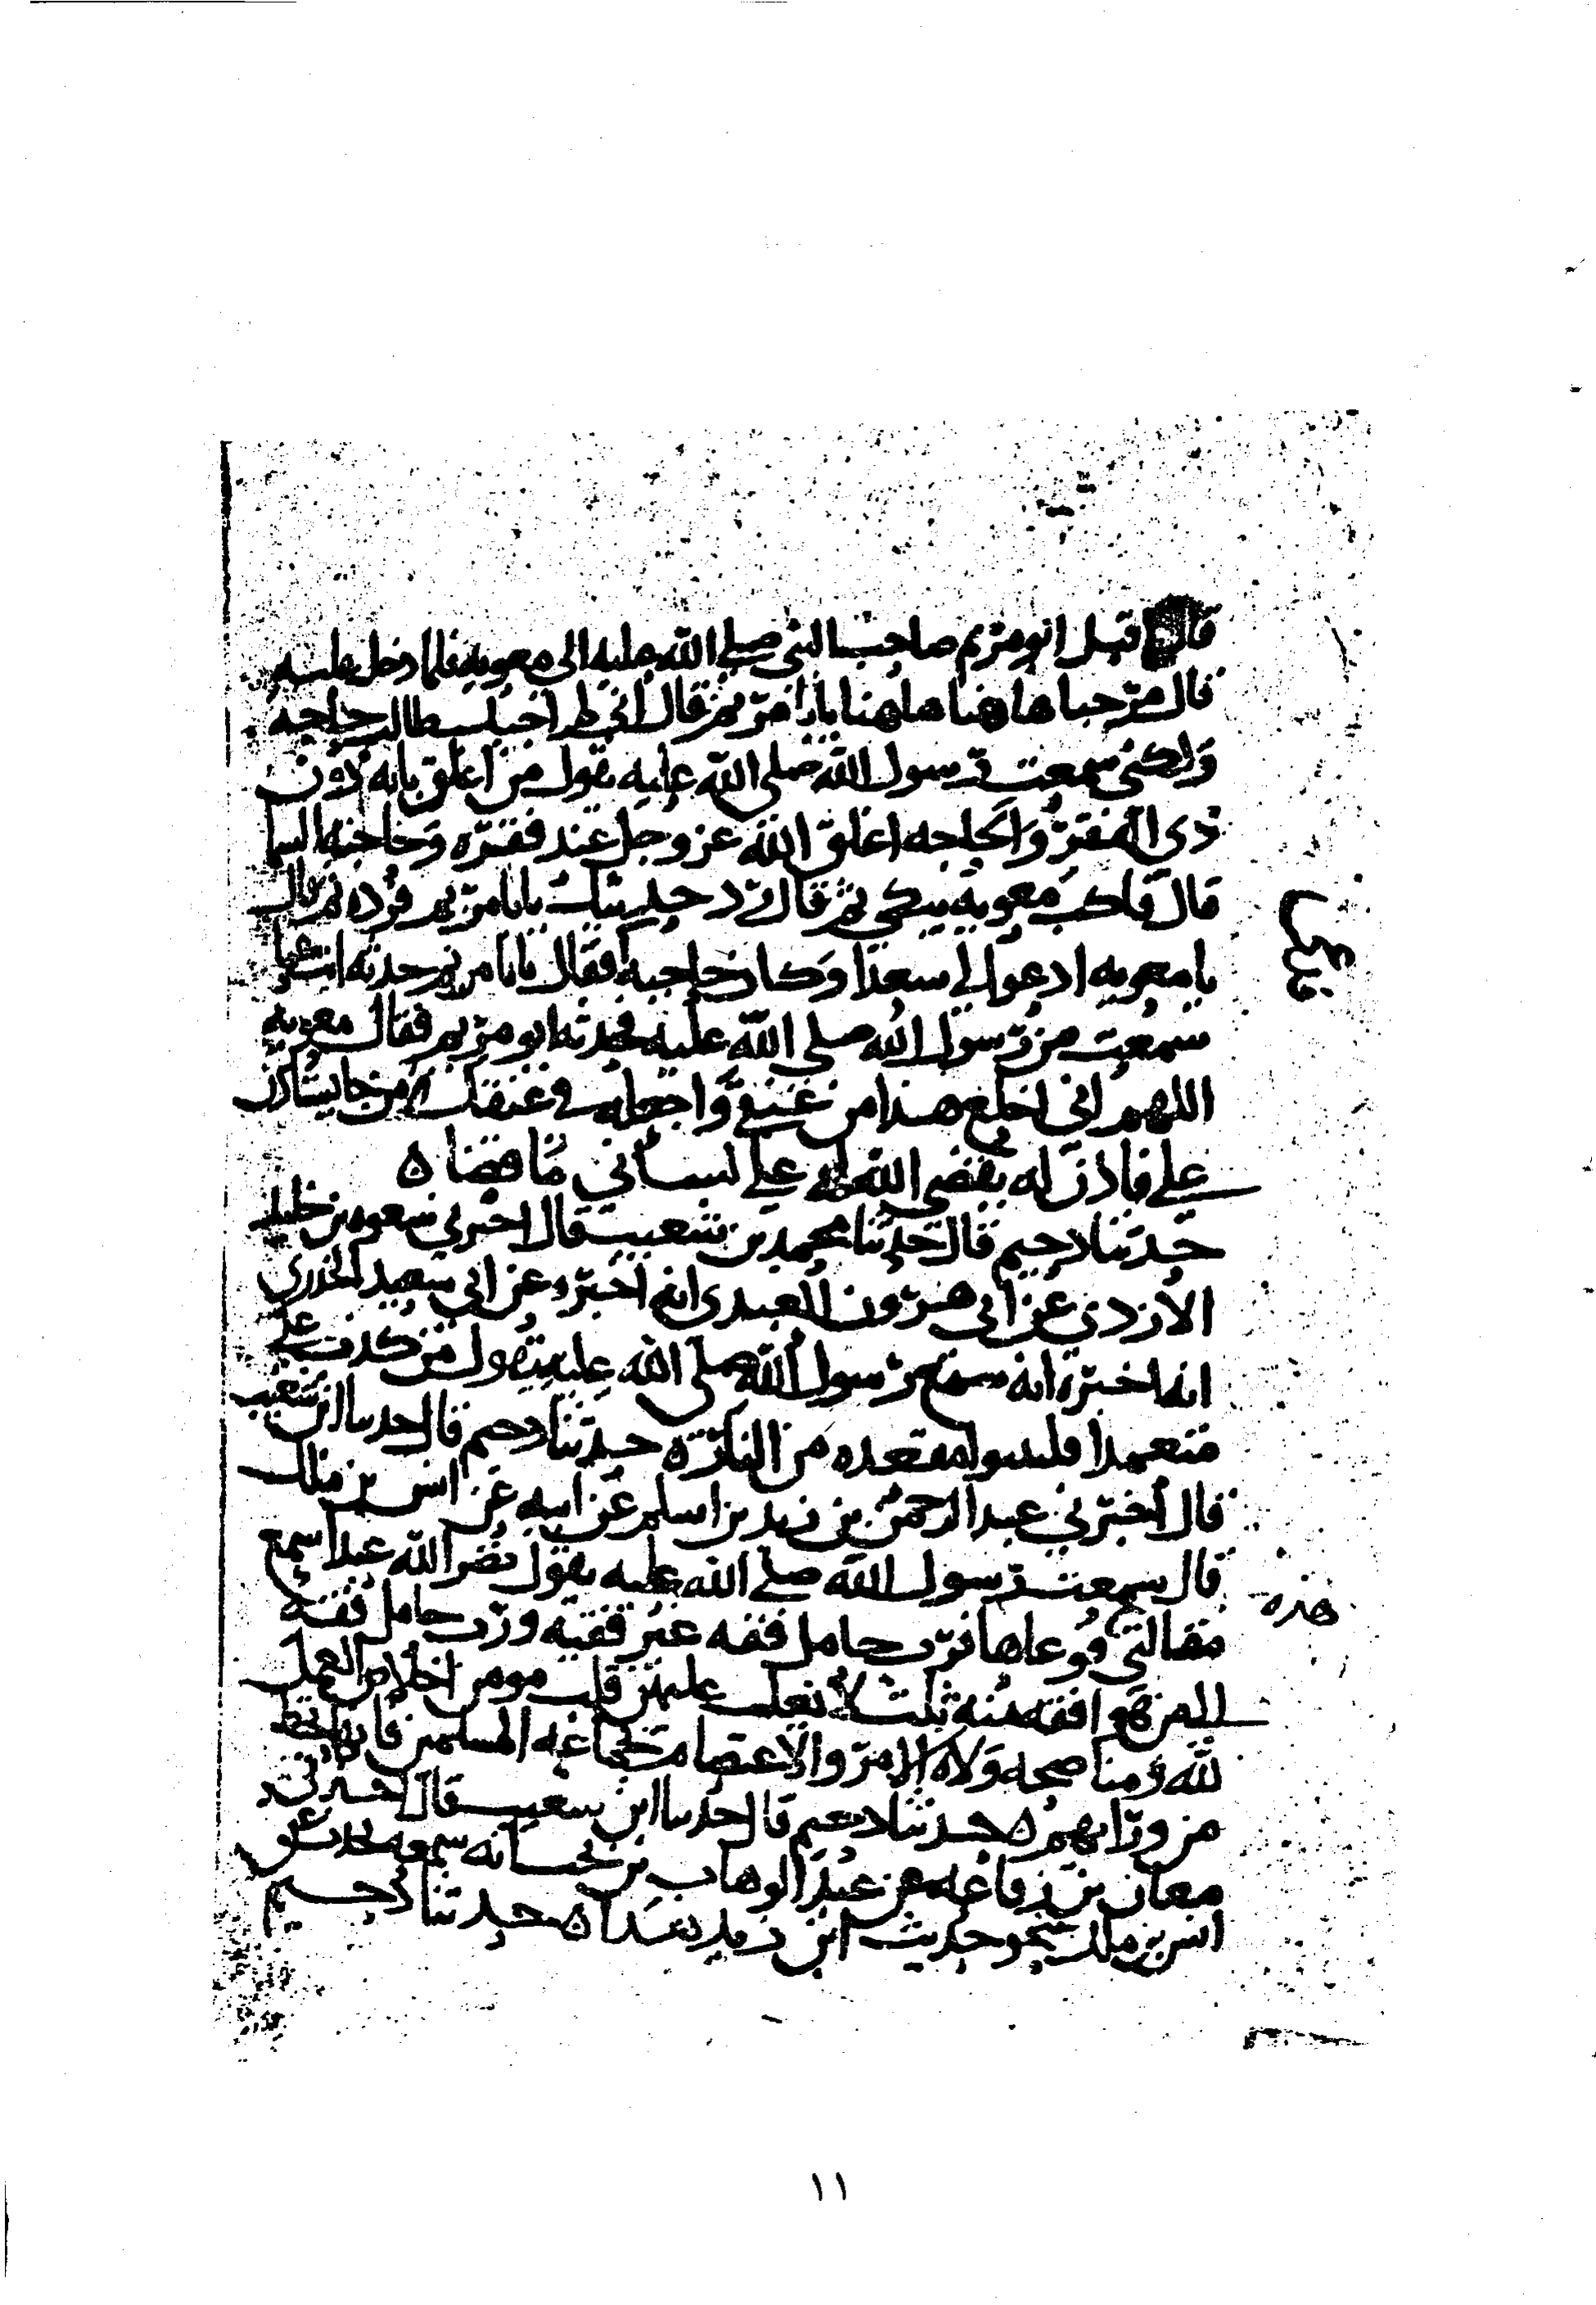 قال اقبل ابو مريم صاحب النبي صلى الله عليه الى معويه فلما دخل عليه
قال مرحبا هاهنا هاهنا يابا مريم قال اني لم اجيك طالب حاجه
ولكني سمعت رسول الله صلى الله عليه يقول من اغلق بابه دون
ذوي الفقر والحاجه اغلق الله عز وجل عند فقره وحاجته السما
قال فاكب معويه يبكي ثم قال رد حديثك يابا مريم فرده ثم قال
يا معويه ادعوا لي سعدا وكان حاجبه فقال يابا مريم حدثه انت كما
سمعت من رسول الله صلى الله عليه فحدثه ابو مريم فقال معويه
اللهم اني اخلع هذا من عنقي واجعله في عنقك من جا يستاذن
علي فاذن له يقضي الله له على لساني ما قضا ه
حدثنا دحيم قال حدثنا محمد بن شعيب قال اخبرني سعوه بن
الازدي عن ابي هرون العبدي انه اخبره عن ابي سعيد الخدري
انه اخبره انه سمع رسول الله صلى الله عليه يقول من كذب علي
متعمدا فليتبوا مقعده من النار ه حدثنا دحيم قال حدثنا ابن شعيب
قال اخبرني عبد الرحمن بن زيد بن اسلم عن ابيه عن انس بن ملك
قال سمعت رسول الله صلى الله عليه يقول نضر الله عبدا سمع
هذه
مقالتي فوعاها فرب حامل فقه غير فقيه ورب حامل فقه
الى من هو افقه منه ثلث لا يغل عليهن قلب مومن اخلاص العمل
لله ومناصحه ولاه الامر والاعتصام بجماعه المسلمين فان
من ورائهم ه حدثنا دحيم قال حدثنا ابن شعيب قال اخبرني
معان بن رفاعه عن عبد الوهاب بن بخت انه سمعه يحدث عن
انس بن ملك نحو حديث ابن زيد هذا ه حدثنا دحيم
١١